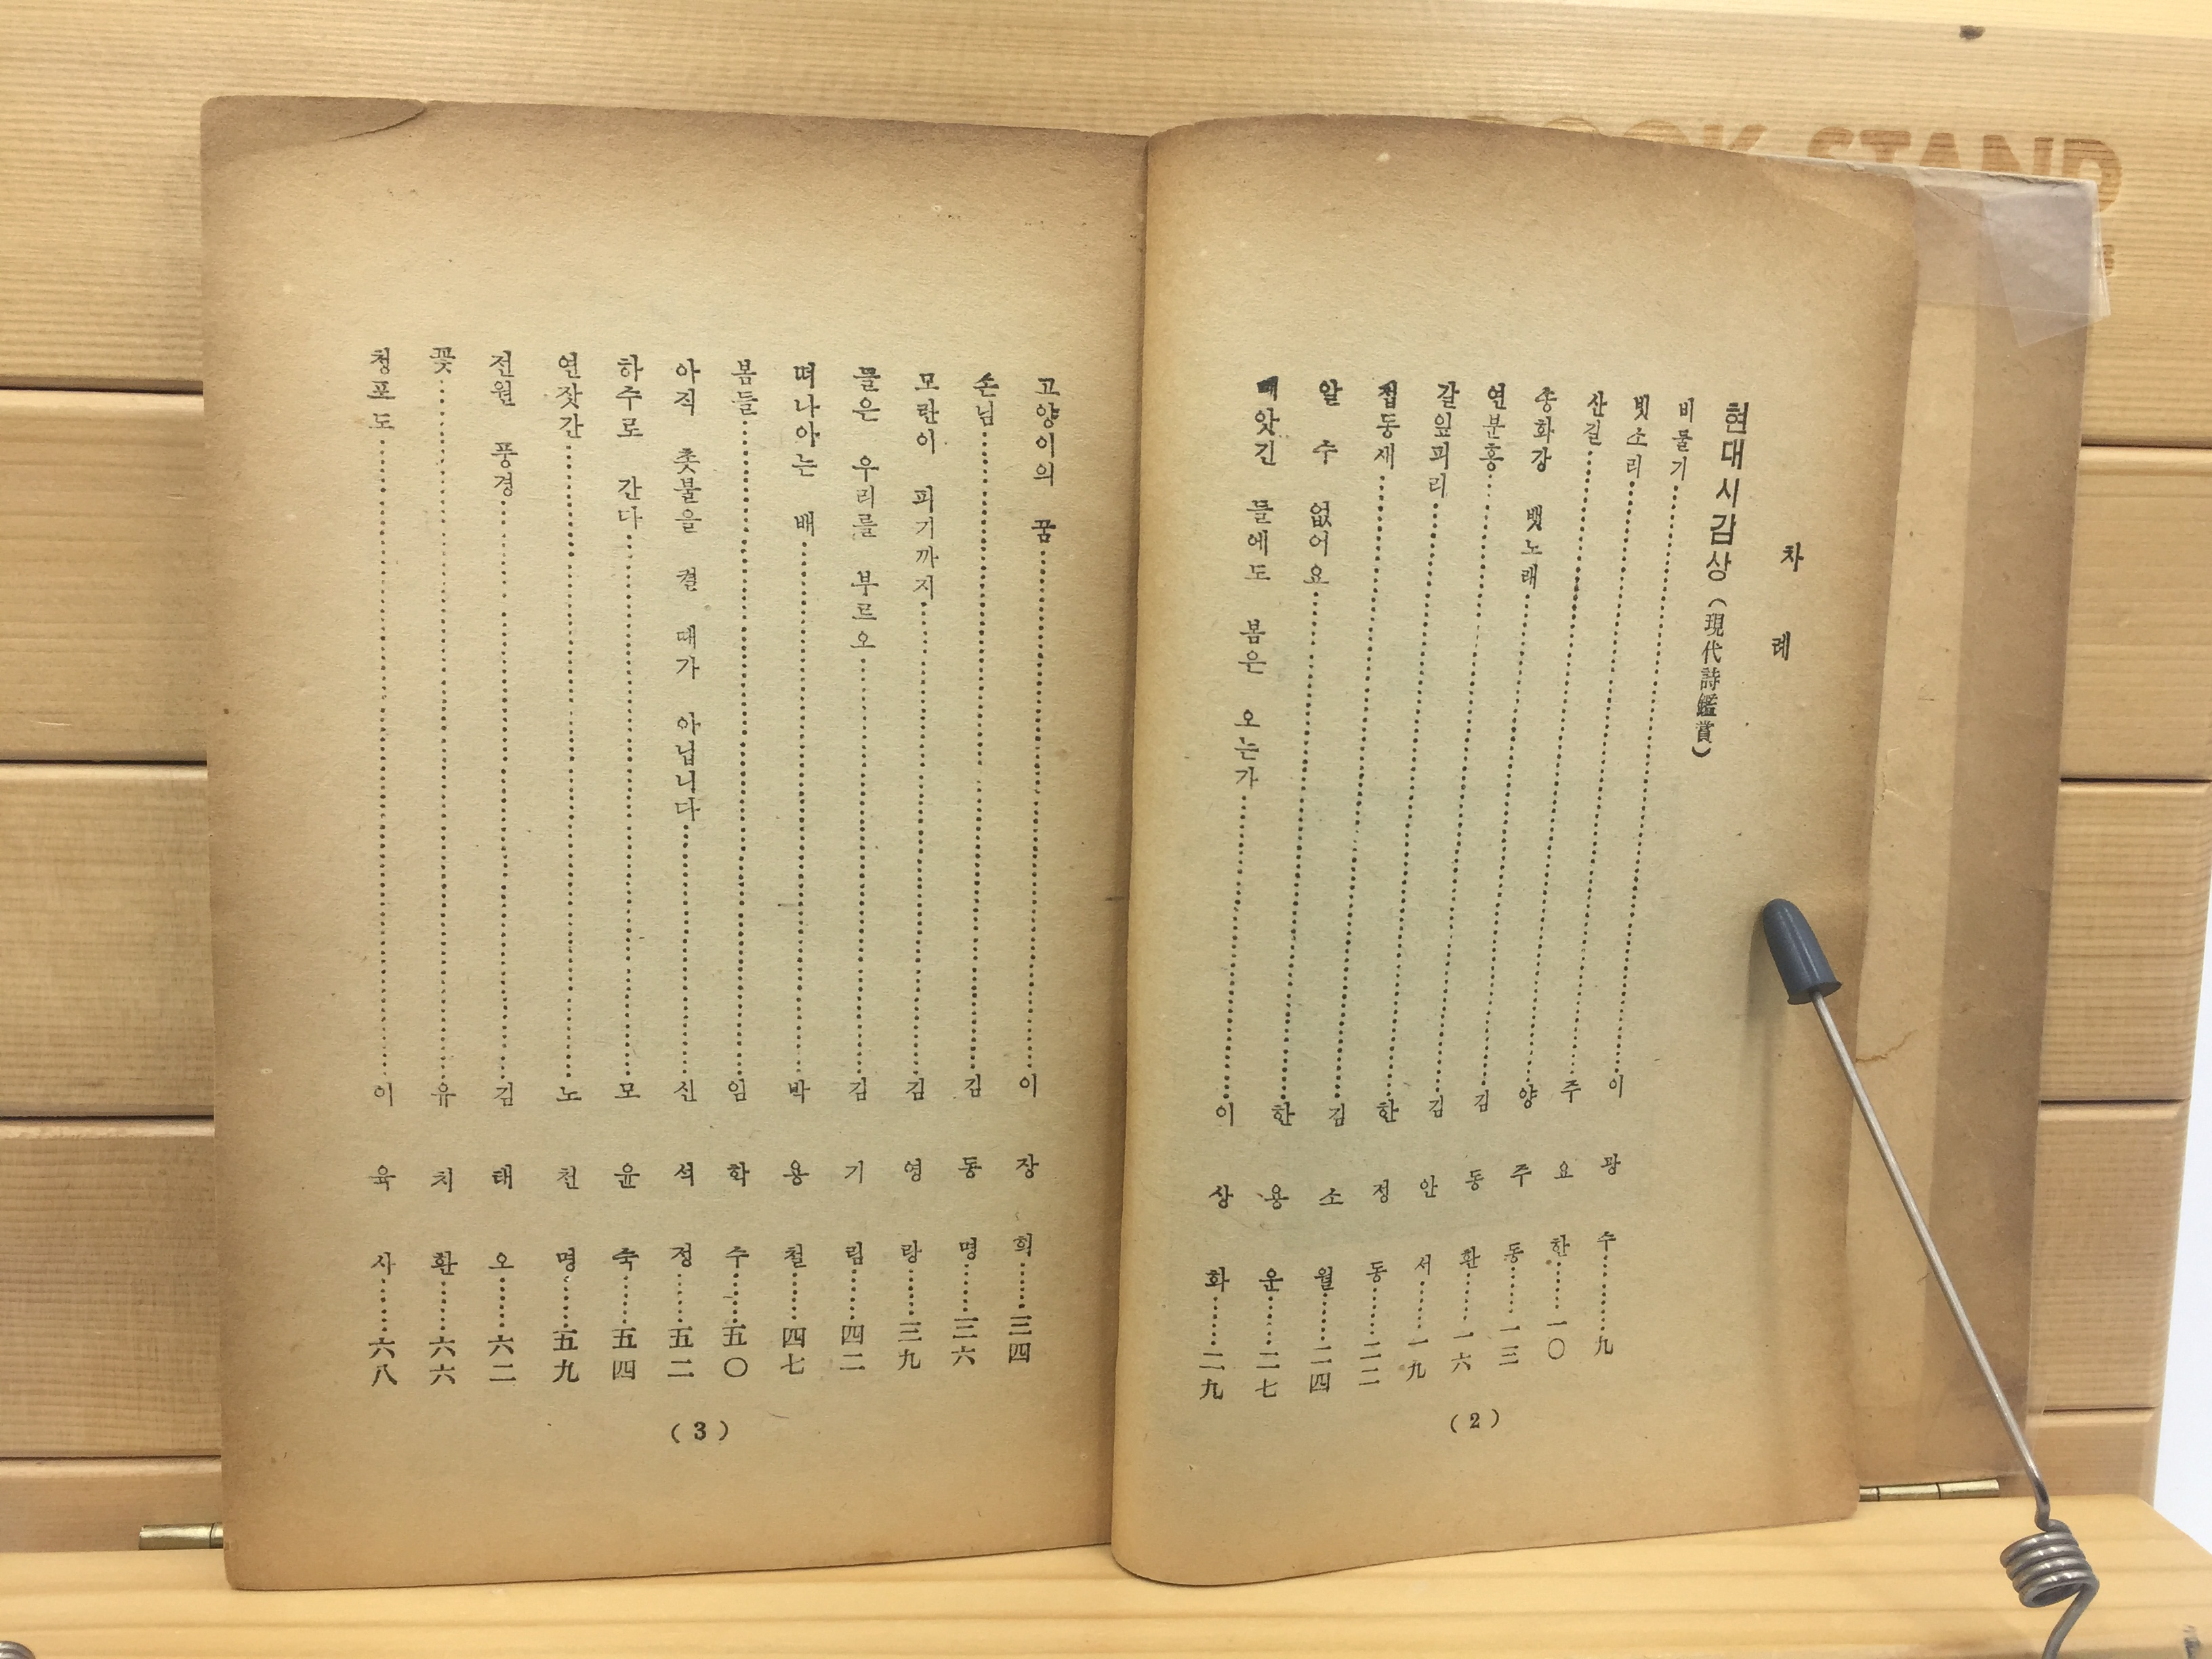 차 례
현대시감상 (現代詩鑑賞)
비둘기 ………… 이 광 수 …… 九
빗소리 ………… 주 요 한 …… 一〇
산길 ………… 양 주 동 …… 一三
송화강 뱃노래 ………… 김 동 환 …… 一六
연분홍 ………… 김 안 서 …… 一九
갈잎피리 ………… 한 정 동 …… 二二
접동새 ………… 김 소 월 …… 二四
알 수 없어요 ………… 한 용 운 …… 二七
빼앗긴 들에도 봄은 오는가 ………… 이 상 화 …… 二九
(2)
고양이의 꿈 ………… 이 장 희 …… 三四
손님 ………… 김 동 명 …… 三六
모란이 피기까지 ………… 김 영 랑 …… 三九
들은 우리를 부르오 ………… 김 기 림 …… 四二
떠나아는 배 ………… 박 용 철 …… 四七
봄들 ………… 임 학 수 …… 五〇
아직 촛불을 켤 때가 아닙니다 ………… 신 석 정 …… 五二
하주로 간다 ………… 모 윤 숙 …… 五四
연잣간 ………… 노 천 명 …… 五九
전원 풍경 ………… 김 태 오 …… 六二
꽃 ………… 유 치 환 …… 六六
청포도 ………… 이 육 사 …… 六八
(3)
BOOK STAND